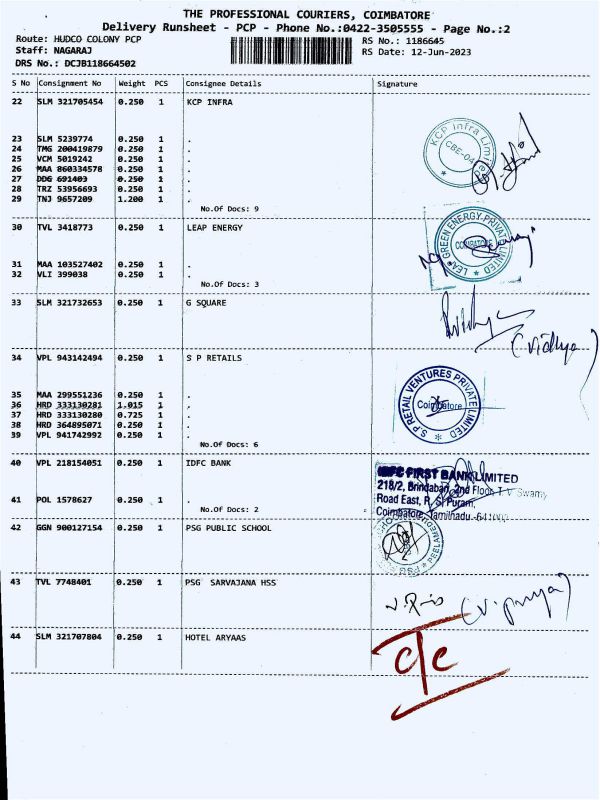 THE PROFESSIONAL COURIERS, COIMBATORE
Delivery Runsheet - PCP - Phone No.:0422-3505555 - Page No.:2
Route: HUDCO COLONY PCP RS No.: 1186645
Staff: NAGARAJ RS Date: 12-Jun-2023
DRS No.: DCJB118664502
S No Consignment No Weight PCS Consignee Details Signature
22 SLM 321705454 0.250 1 KCP INFRA
23 SLM 5239774 0.250 1 .
24 TMG 200419879 0.250 1 .
25 VCM 5019242 0.250 1 .
26 MAA 860334578 0.250 1 .
27 DDG 691403 0.250 1 .
28 TRZ 53956693 0.250 1 .
29 TNJ 9657209 1.200 1 .
No.Of Docs: 9
KCP Infra Limited
CBE-04
30 TVL 3418773 0.250 1 LEAP ENERGY
31 MAA 103527402 0.250 1 .
32 VLI 399038 0.250 1 .
No.Of Docs: 3
LEAP GREEN ENERGY PRIVATE LIMITED
COIMBATORE
33 SLM 321732653 0.250 1 G SQUARE
(Vidhya)
34 VPL 943142494 0.250 1 S P RETAILS
35 MAA 299551236 0.250 1 .
36 HRD 333130281 1.015 1 .
37 HRD 333130280 0.725 1 .
38 HRD 364895071 0.250 1 .
39 VPL 941742992 0.250 1 .
No.Of Docs: 6
S P RETAIL VENTURES PRIVATE LIMITED
Coimbatore
40 VPL 218154051 0.250 1 IDFC BANK
41 POL 1578627 0.250 1 .
No.Of Docs: 2
IDFC FIRST BANK LIMITED
218/2, Brindaban, 2nd Floor, T.V. Swamy
Road East, R. S. Puram,
Coimbatore, Tamilnadu -641002
42 GGN 900127154 0.250 1 PSG PUBLIC SCHOOL
43 TVL 7748401 0.250 1 PSG SARVAJANA HSS
(V. priya)
44 SLM 321707804 0.250 1 HOTEL ARYAAS